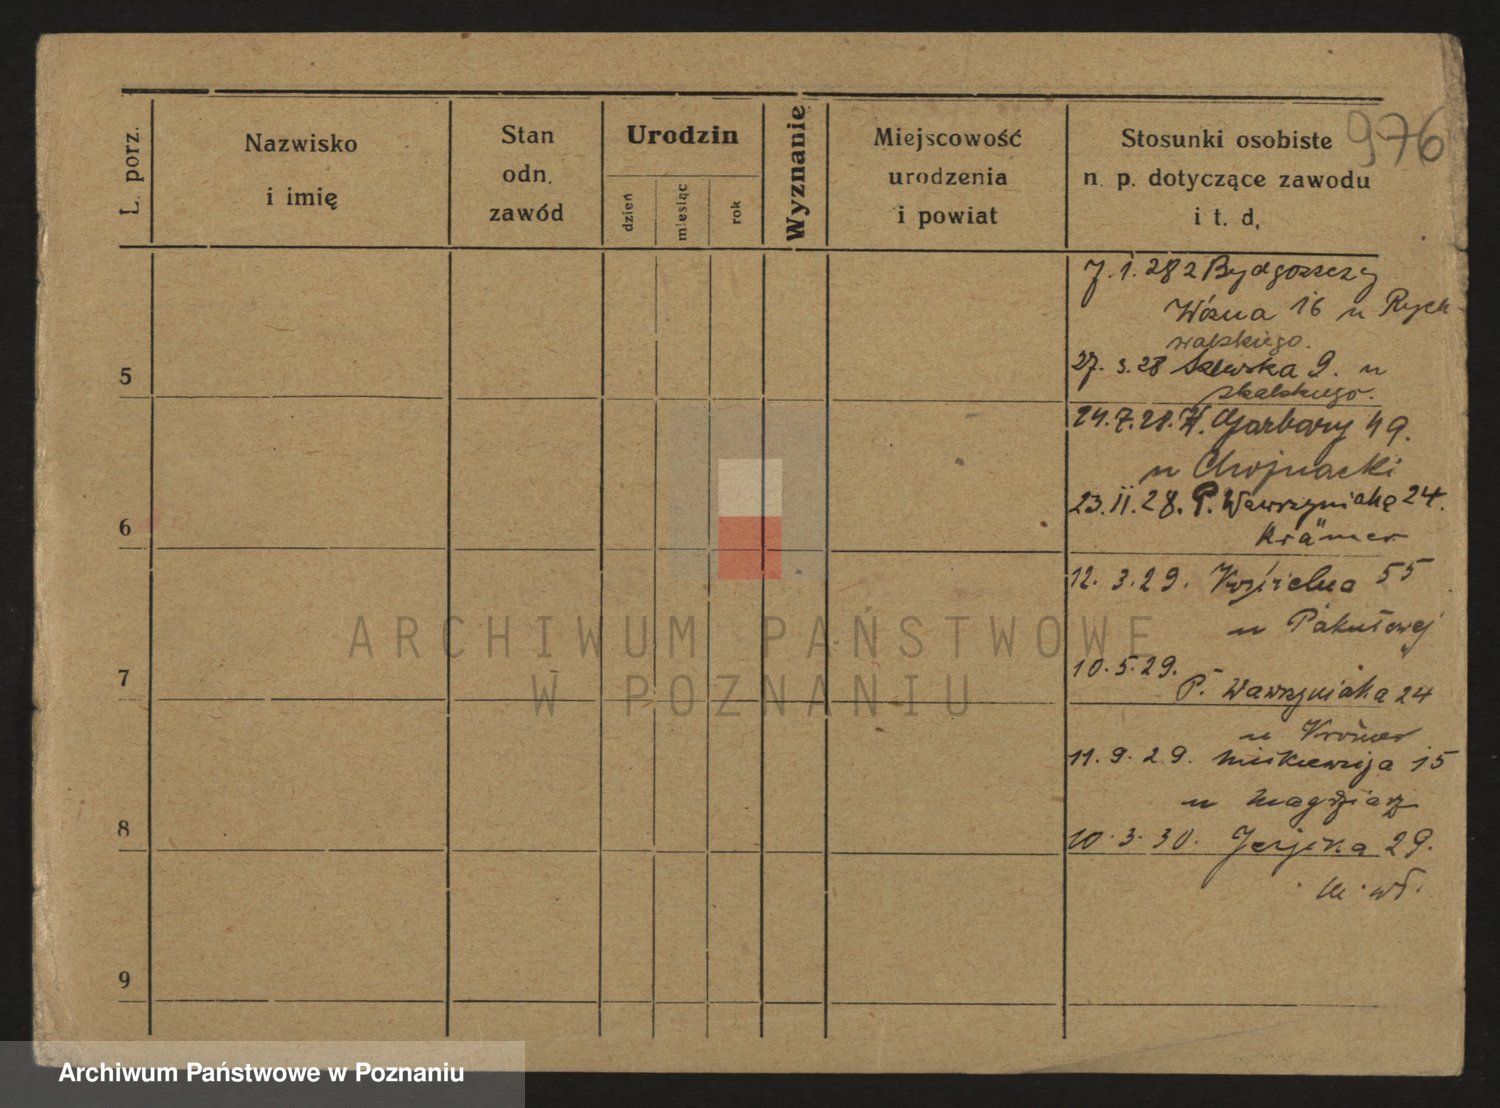 976
L. porz.
Nazwisko
i imię
Stan
odn.
zawód
Urodzin
dzień
miesiąc
rok
Wyznanie
Miejscowość
urodzenia
i powiat
Stosunki osobiste
n. p. dotyczące zawodu
i t. d.
7.1.28 z Bydgoszczy
Woźna 16 u Rych-
walskiego.
27.3.28 Szewska 9. u
Skalskiego.
24.7.28. Garbary 49.
u Chojnacki
23.11.28. P. Wawrzyniaka 24.
Krämer
12.3.29. 55
u
10.5.29.
P. Wawrzyniaka 24
u Krömer
11.9.29. 15
u Magdziarz
10.3.30. 29.
5
6
7
8
9
ARCHIWUM PAŃSTWOWE
W POZNANIU
Archiwum Państwowe w Poznaniu